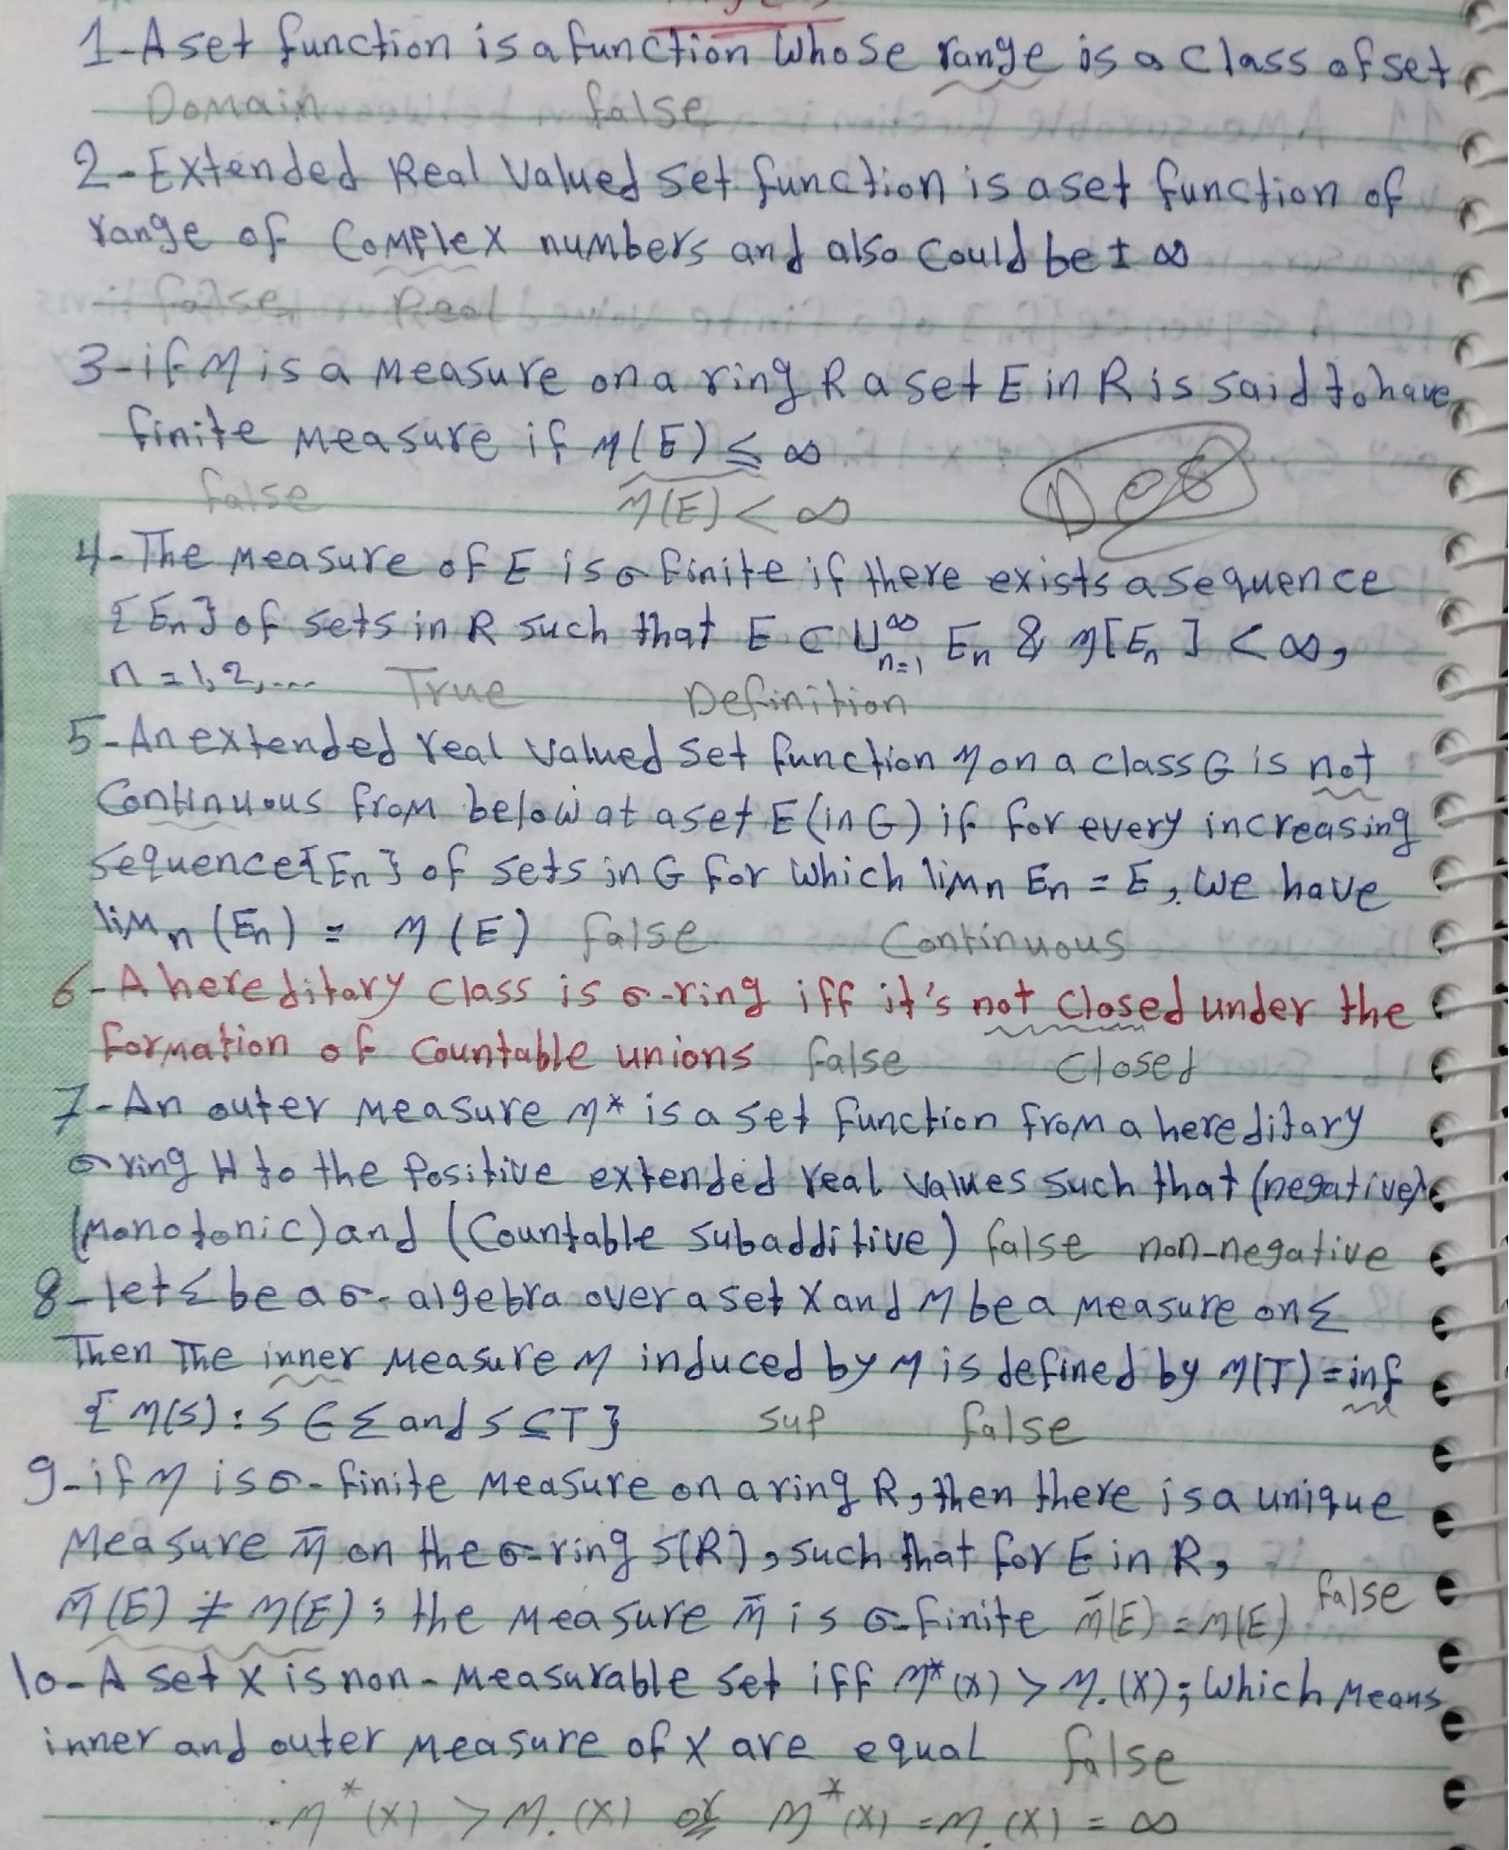 1-A set function is a function whose range is a class of set
Domain false
2-Extended Real Valued set function is a set function of
range of Complex numbers and also Could be ± ∞
false Real
3-if M is a measure on a ring R a set E in R is said to have
finite measure if M(E) ≤ ∞
false M(E) < ∞
4-The measure of E is σ finite if there exists a sequence
{En} of sets in R such that E ⊂ ∪∞n=1 En & M[En] < ∞,
n = 1,2,... True Definition
5-An extended real valued set function M on a class G is not
Continuous from below at a set E (in G) if for every increasing
sequence {En} of sets in G for which limn En = E, we have
limn (En) = M(E) false Continuous
6-A hereditary class is σ-ring iff it's not closed under the
formation of Countable unions false Closed
7-An outer measure M* is a set function from a hereditary
σ ring H to the Positive extended real values such that (negative)
(monotonic) and (Countable subadditive) false non-negative
8-let Σ be a σ-algebra over a set X and M be a measure on Σ
Then The inner measure M induced by M is defined by M(T) = inf
{M(S) : S ∈ Σ and S ⊆ T} sup false
9-if M is σ-finite measure on a ring R, then there is a unique
measure M̄ on the σ-ring S(R), such that for E in R,
M̄(E) ≠ M(E); the measure M̄ is σ-finite M̄(E) = M(E) false
10-A set X is non-measurable set iff M*(X) > M.(X); which means
inner and outer measure of X are equal false
M*(X) > M.(X) or M*(X) = M.(X) = ∞